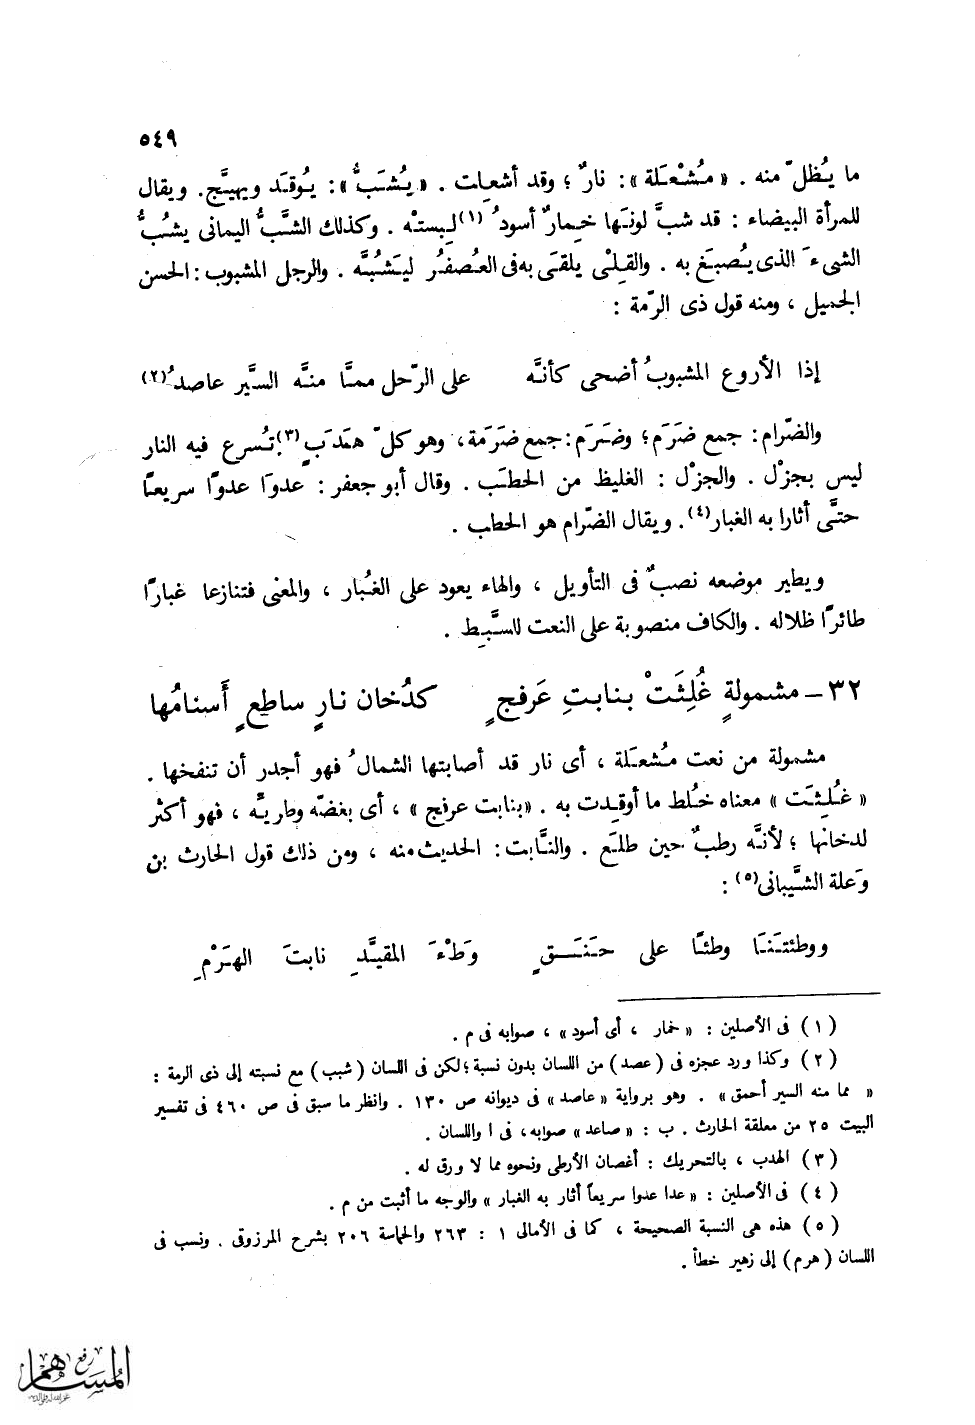 ٥٤٩
ما يُظلّ منه . « مُشْعَلة » : نارٌ ؛ وقد أشعلت . « يُشَبُّ » : يُوقَد ويهيَّج . ويقال
للمرأة البيضاء : قد شبَّ لونَها خِمارٌ أسودُ (١) لبِستْه . وكذلك الشَّبُّ اليمانى يشُبُّ
الشىءَ الذى يُصبَغ به . والقِلْى يلقَى به فى العُصفُر ليَشُبَّه . والرجل المشبوب : الحسن
الجميل ، ومنه قول ذى الرّمة :
إذا الأروع المشبوبُ أضحى كأنَّه على الرّحل ممَّا منَّه السَّير عاصدُ (٢)
والضّرام : جمع ضَرَم ؛ وضَرَم : جمع ضَرَمة ، وهو كلّ هَدَبٍ (٣) تُسرع فيه النار
ليس بجزْل . والجزْل : الغليظ من الحطَب . وقال أبو جعفر : عدوَا عدوًا سريعًا
حتَّى أثارا به الغبار (٤) . ويقال الضّرام هو الحطب .
ويطير موضعه نصبٌ فى التأويل ، والهاء يعود على الغُبار ، والمعنى فتنازعا غبارًا
طائرًا ظلاله . والكاف منصوبة على النعت للسَّبِط .
٣٢ – مشمولةٍ غُلِثَتْ بنابتِ عَرفجٍ كدُخان نارٍ ساطعٍ أَسنامُها
مشمولة من نعت مُشعَلة ، أى نار قد أصابتها الشمالُ فهو أجدر أن تنفخها .
« غُلِثَت » معناه خُلط ما أوقِدت به . « بنابت عرفج » ، أى بغضّه وطريَّه ، فهو أكثر
لدخانها ؛ لأنَّه رطبٌ حين طلَع . والنَّابت : الحديث منه ، ومن ذلك قول الحارث بن
وَعلة الشَّيبانى (٥) :
ووطئتَنَا وطئًا على حَنَقٍ وَطْءَ المقيَّدِ نابتَ الهَرْمِ
(١) فى الأصلين : « خمار ، أى أسود » ، صوابه فى م .
(٢) وكذا ورد عجزه فى (عصد) من اللسان بدون نسبة ؛ لكن فى اللسان (شبب) مع نسبته إلى ذى الرمة :
« مما منه السير أحمق » . وهو برواية « عاصد » فى ديوانه ص ١٣٠ . وانظر ما سبق فى ص ٤٦٠ فى تفسير
البيت ٢٥ من معلقة الحارث . ب : « صاعد » صوابه ، فى ا واللسان .
(٣) الهدب ، بالتحريك : أغصان الأرطى ونحوه مما لا ورق له .
(٤) فى الأصلين : « عدا عدوا سريعاً أثار به الغبار » والوجه ما أثبت من م .
(٥) هذه هى النسبة الصحيحة ، كما فى الأمالى ١ : ٢٦٣ والحماسة ٢٠٦ بشرح المرزوقى . ونسب فى
اللسان (هرم) إلى زهير خطأ .